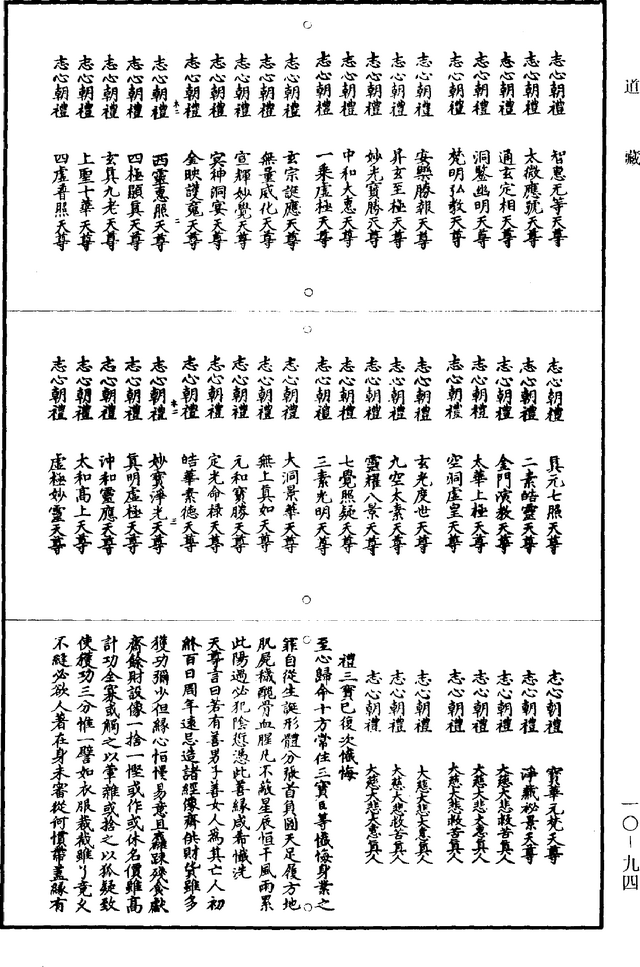 道藏
志心朝禮 智惠无等天尊
志心朝禮 太微應號天尊
志心朝禮 通玄定相天尊
志心朝禮 洞鑒幽明天尊
志心朝禮 梵明弘教天尊
志心朝禮 安樂勝報天尊
志心朝禮 昇玄至極天尊
志心朝禮 妙光寶勝天尊
志心朝禮 中和大惠天尊
志心朝禮 一乘虛極天尊
志心朝禮 玄宗誕應天尊
志心朝禮 無量威化天尊
志心朝禮 宣輝妙覺天尊
志心朝禮 冥神洞宴天尊
志心朝禮 金映護魂天尊
志心朝禮 西靈惠照天尊
志心朝禮 四極顯真天尊
志心朝禮 玄真九老天尊
志心朝禮 上聖十華天尊
志心朝禮 四虛普照天尊
志心朝禮 具元七照天尊
志心朝禮 二素皓靈天尊
志心朝禮 金門演教天尊
志心朝禮 太華上極天尊
志心朝禮 空洞虛皇天尊
志心朝禮 玄光度世天尊
志心朝禮 九空太素天尊
志心朝禮 靈耀八景天尊
志心朝禮 七覺照疑天尊
志心朝禮 三素光明天尊
志心朝禮 大洞景華天尊
志心朝禮 無上真如天尊
志心朝禮 元和寶勝天尊
志心朝禮 定光命祿天尊
志心朝禮 皓華素德天尊
志心朝禮 妙寶淨光天尊
志心朝禮 真明虛極天尊
志心朝禮 沖和靈應天尊
志心朝禮 太和高上天尊
志心朝禮 虛極妙靈天尊
志心朝禮 寶華元梵天尊
志心朝禮 淨藏祕景天尊
志心朝禮 大慈大悲救苦真人
志心朝禮 大慈大悲大惠真人
志心朝禮 大慈大悲救苦真人
志心朝禮 大慈大悲大惠真人
志心朝禮 大慈大悲救苦真人
志心朝禮 大慈大悲大惠真人
禮三寶已復次懺悔
至心歸命十方常住三寶臣等懺悔身業之
罪自從生誕形體分張首負圓天足履方地
肌屍穢醜骨血腥凡不敬星辰恒干風雨累
此陽過必犯陰愆憑此善緣咸希懺洗
天尊言曰若有善男子善女人為其亡人初
終百日周年遠忌造諸經像齋供財貨雖多
獲功獮少但緣心怕慢易意且麤踈殘食獻
齋餘財設像一捨一慳或作或休名價雖高
計功全寡或觸之以葷雜或捨之以狐疑致
使獲功三分惟一譬如衣服裁裁雖了竟乂
不縫必欲人著在身未審從何慣帶蓋緣有
一〇—九四